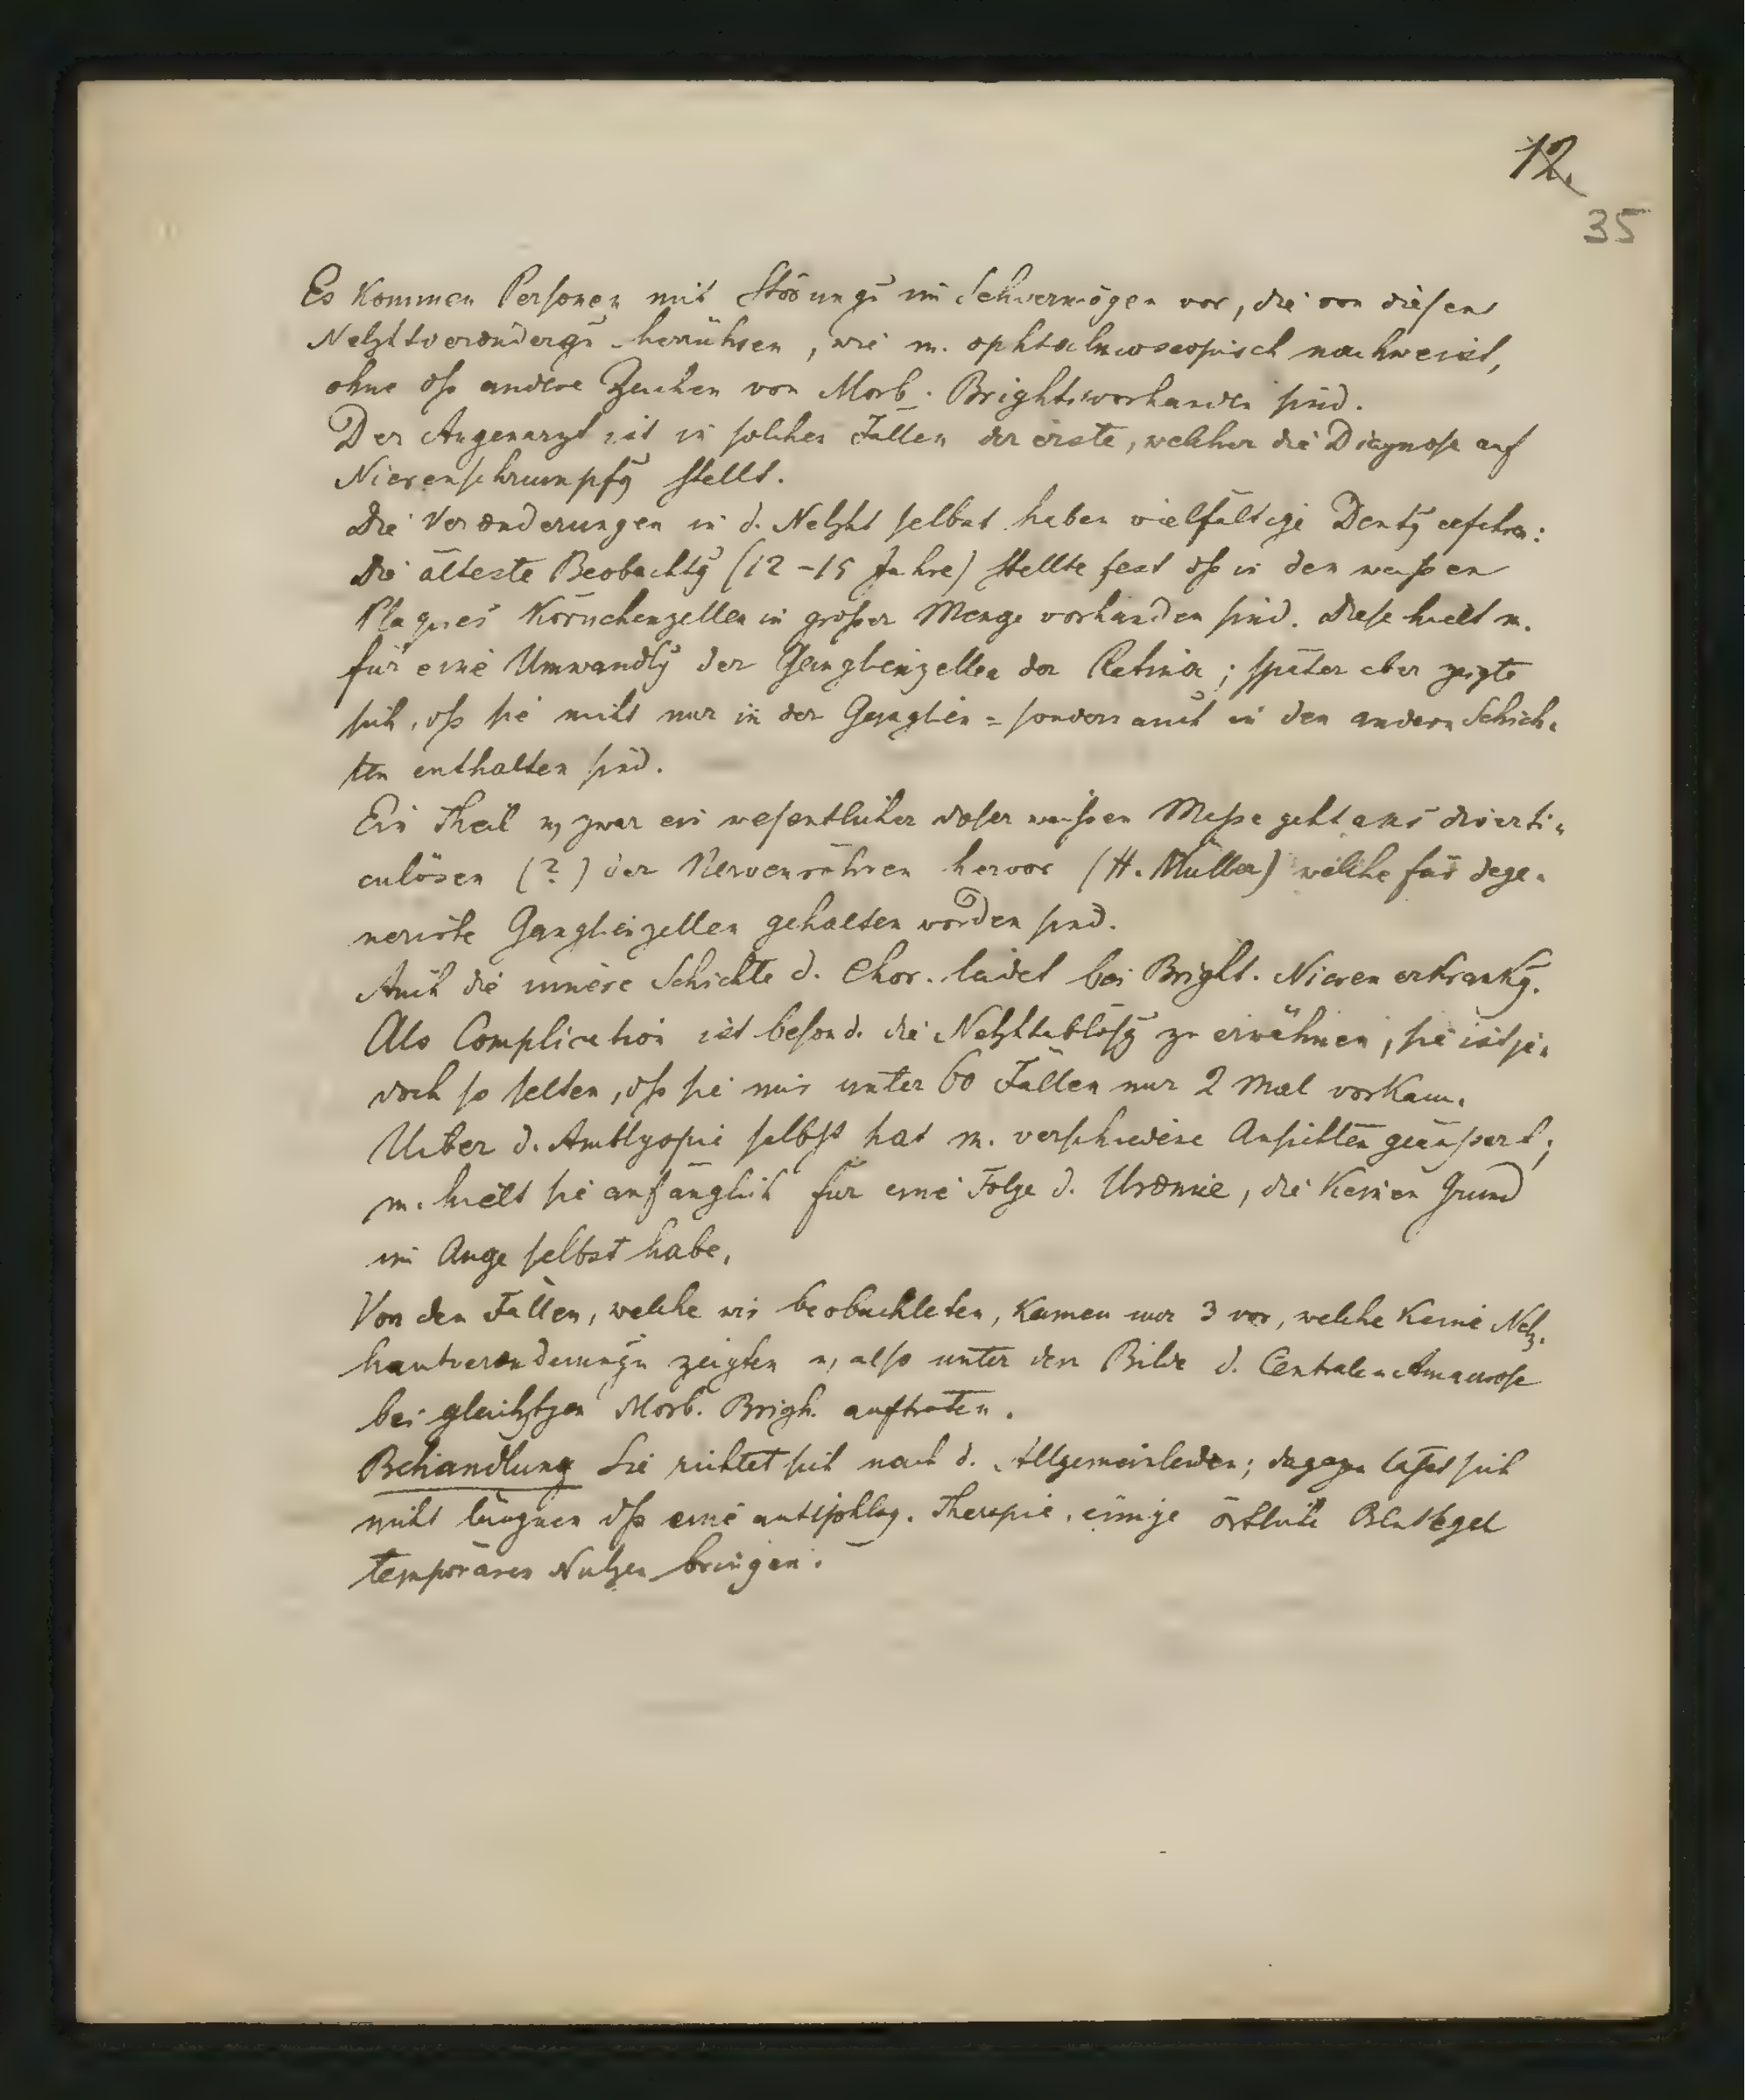 12.
35
Es kommen Personen mit Störungē im Sehvermögen vor, die von diesen
Netzhtverändergē herrühren, wie m. ophtalmoscopisch nachweist,
ohne dß andere Zeichen von Morb. Brights vorhanden sind.
Der Augenarzt ist in solchen Fällen der erste, welcher die Diagnose auf
Nierenschrumpfg stellt.
Die Veränderungen in d. Netzht selbst haben vielfältige Deutg erfahren:
Die älteste Beobachtg (12-15 Jahre) stellte fest dß in den weißen
Plaques Körnchenzellen in großer Menge vorhanden sind. Diese hielt m.
für eine Umwandlg der Ganglienzellen der Retina; später aber zeigte
sich, dß sie nicht nur in der Ganglien= sondern auch in den andern Schich-
ten enthalten sind.
Ein Theil u. zwar ein wesentlicher dieser weißen Masse geht aus diverti-
culösen (?) der Nervenröhren hervor (H. Müller) welche für dege-
nerirte Ganglienzellen gehalten worden sind.
Auch die innere Schichte d. Chor. leidet bei Bright. Nierenerkrankg.
Als Complication ist besond. die Netzhtablösg zu erwähnen, sie ist je-
doch so selten, dß sie mir unter 60 Fällen nur 2 Mal vorkam.
Ueber d. Amblyopie selbst hat m. verschiedene Ansichten geäußert;
m. hielt sie anfänglich für eine Folge d. Urämie, die keinen Grund
im Auge selbst habe.
Von den Fällen, welche wir beobachteten, kamen nur 3 vor, welche keine Netz-
hautveränderungn zeigten u. also unter dem Bilde d. Centralen Amaurose
bei gleichztgen Morb. Brigh. auftraten.
Behandlung Sie richtet sich nach d. Allgemeinleiden; dagegen läßt sich
nicht läugnen dß eine antiphlog. Therapie, einige örtliche Blutegel
temporären Nutzen bringen.